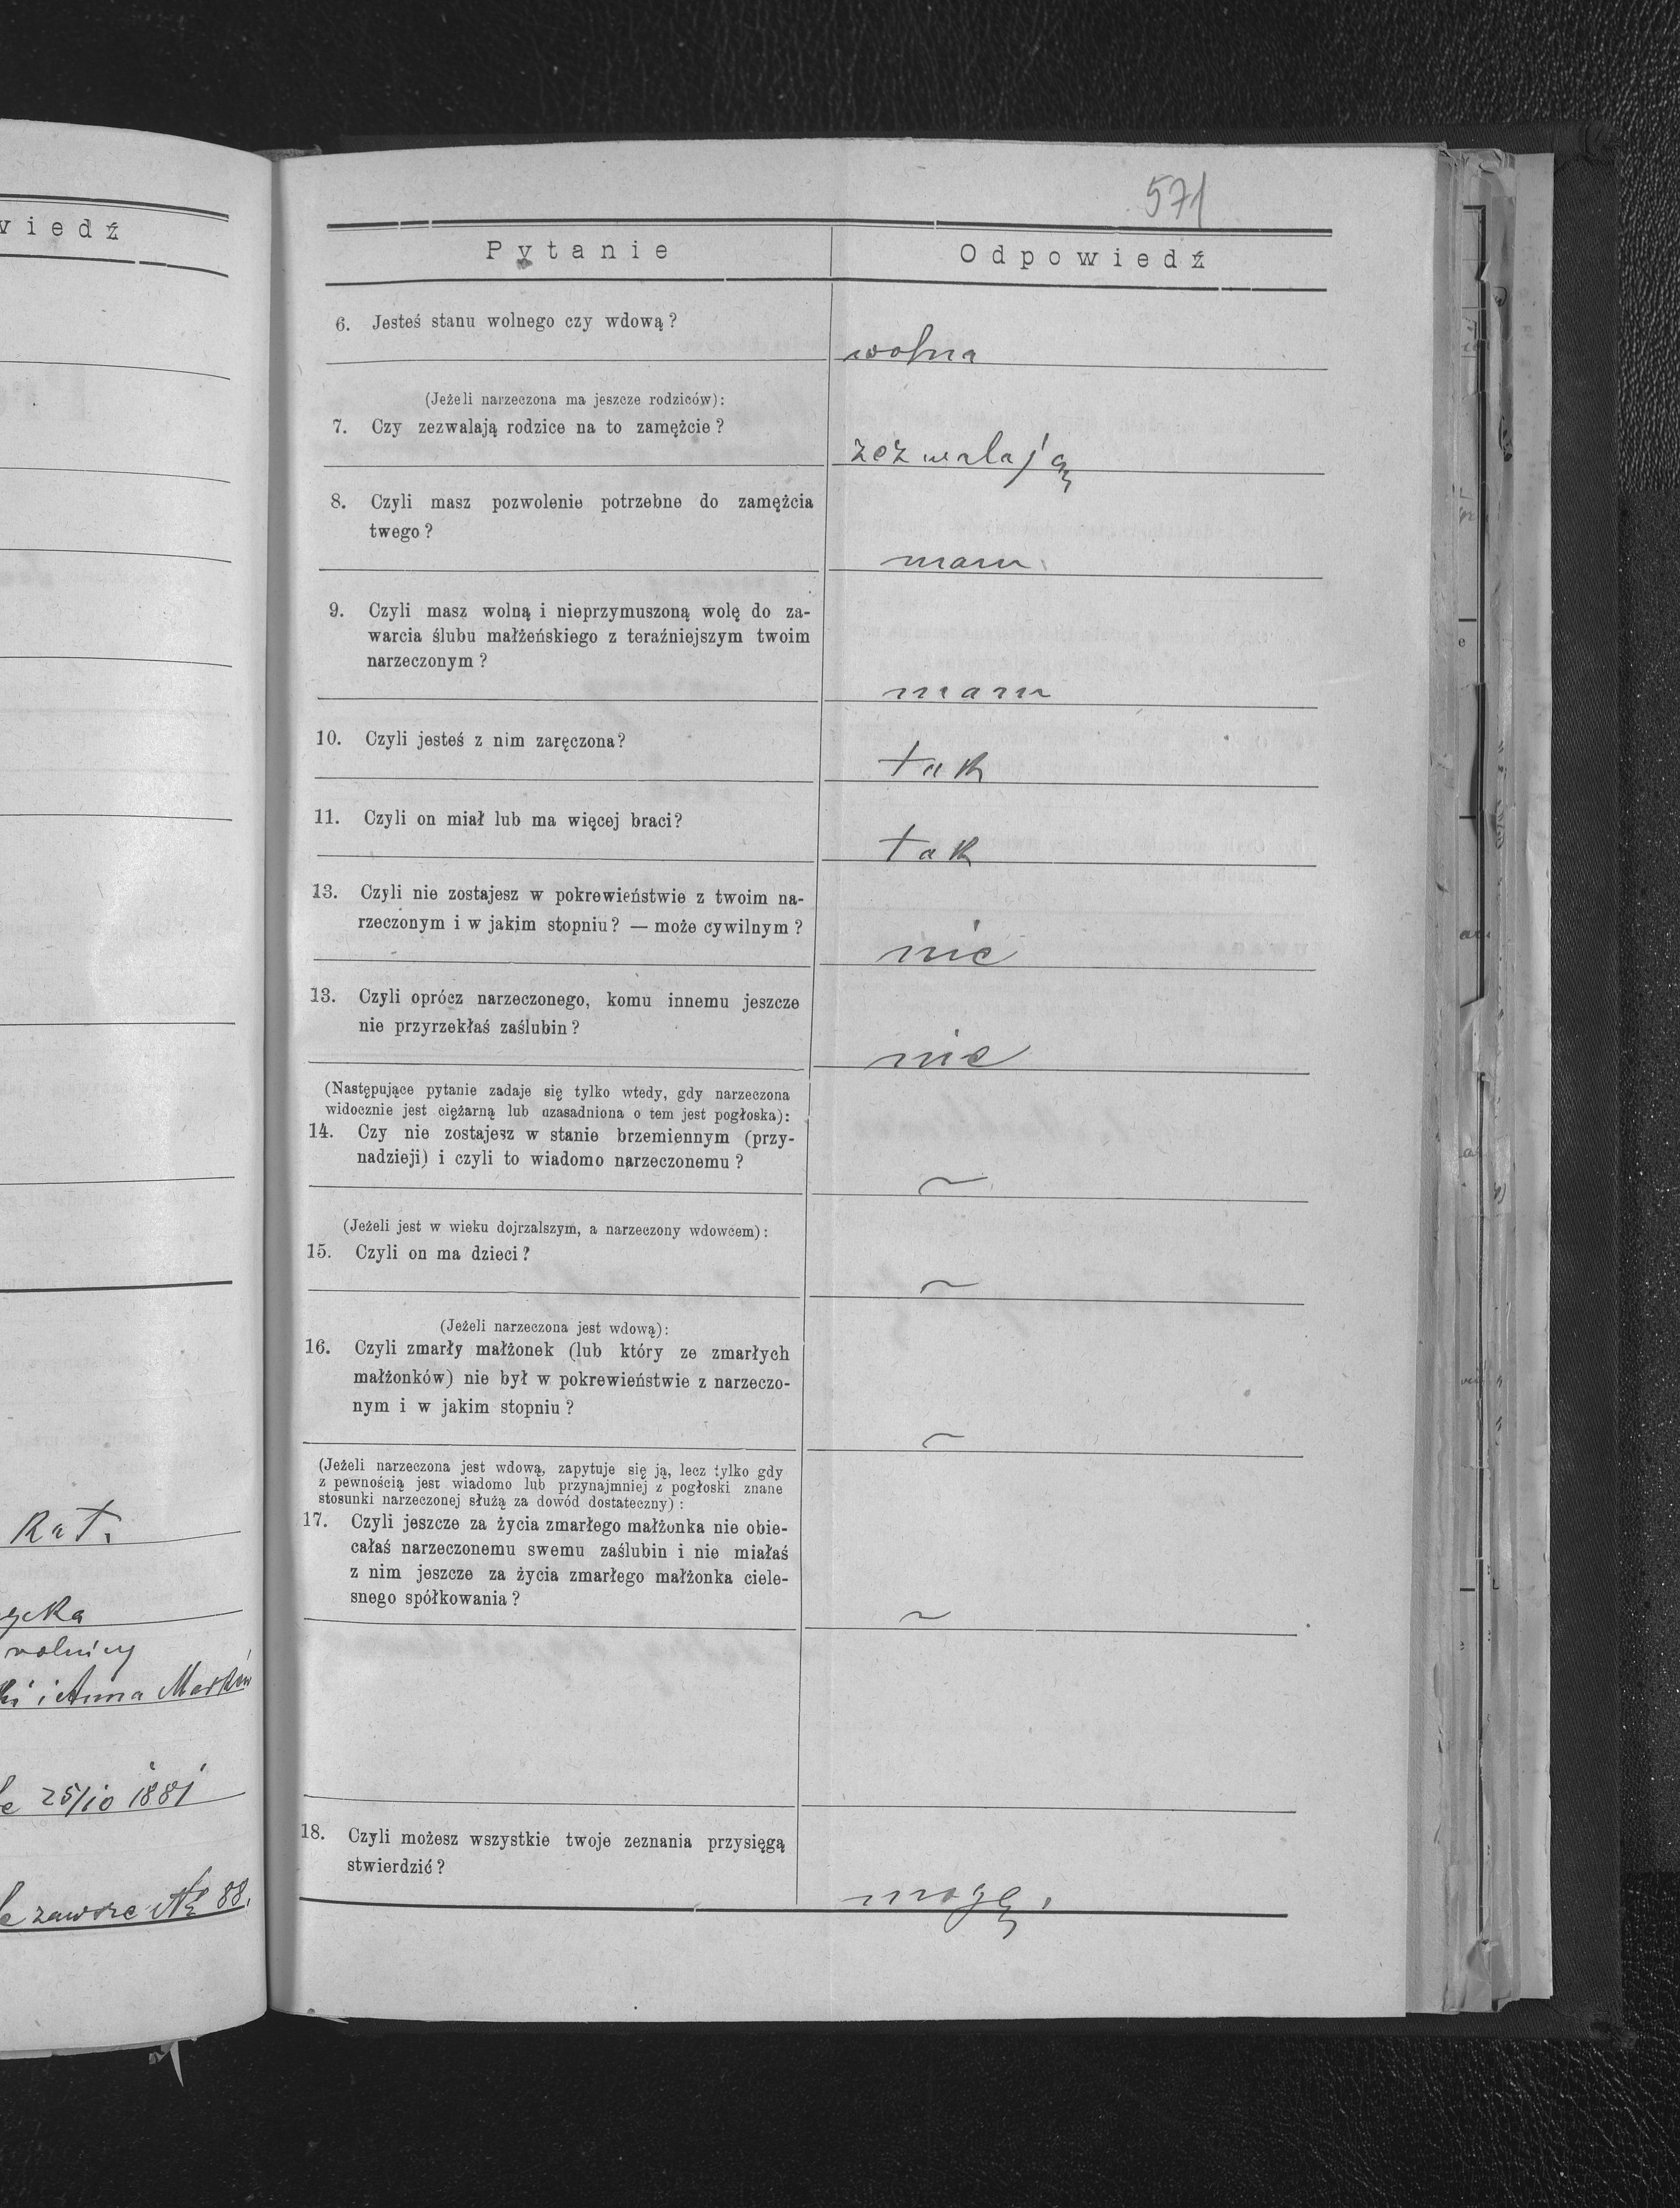 wiedź
Rat.
ycka
rolnicy
ki i Anna Markow
le 25/10 1881
le zawsze № 88.
571
Pytanie Odpowiedź
6. Jesteś stanu wolnego czy wdową?
wolna
(Jeżeli narzeczona ma jeszcze rodziców):
7. Czy zezwalają rodzice na to zamężcie?
zezwalają
8. Czyli masz pozwolenie potrzebne do zamężcia
twego?
mam
9. Czyli masz wolną i nieprzymuszoną wolę do za-
warcia ślubu małżeńskiego z teraźniejszym twoim
narzeczonym?
mam
10. Czyli jesteś z nim zaręczona?
tak
11. Czyli on miał lub ma więcej braci?
tak
13. Czyli nie zostajesz w pokrewieństwie z twoim na-
rzeczonym i w jakim stopniu? — może cywilnym?
nie
13. Czyli oprócz narzeczonego, komu innemu jeszcze
nie przyrzekłaś zaślubin?
nie
(Następujące pytanie zadaje się tylko wtedy, gdy narzeczona
widocznie jest ciężarną lub uzasadniona o tem jest pogłoska):
14. Czy nie zostajesz w stanie brzemiennym (przy-
nadzieji) i czyli to wiadomo narzeczonemu?
~
(Jeżeli jest w wieku dojrzalszym, a narzeczony wdowcem):
15. Czyli on ma dzieci?
~
(Jeżeli narzeczona jest wdową):
16. Czyli zmarły małżonek (lub który ze zmarłych
małżonków) nie był w pokrewieństwie z narzeczo-
nym i w jakim stopniu?
~
(Jeżeli narzeczona jest wdową, zapytuje się ją, lecz tylko gdy
z pewnością jest wiadomo lub przynajmniej z pogłoski znane
stosunki narzeczonej służą za dowód dostateczny):
17. Czyli jeszcze za życia zmarłego małżonka nie obie-
całaś narzeczonemu swemu zaślubin i nie miałaś
z nim jeszcze za życia zmarłego małżonka ciele-
snego spółkowania?
~
18. Czyli możesz wszystkie twoje zeznania przysięgą
stwierdzić?
mogę.